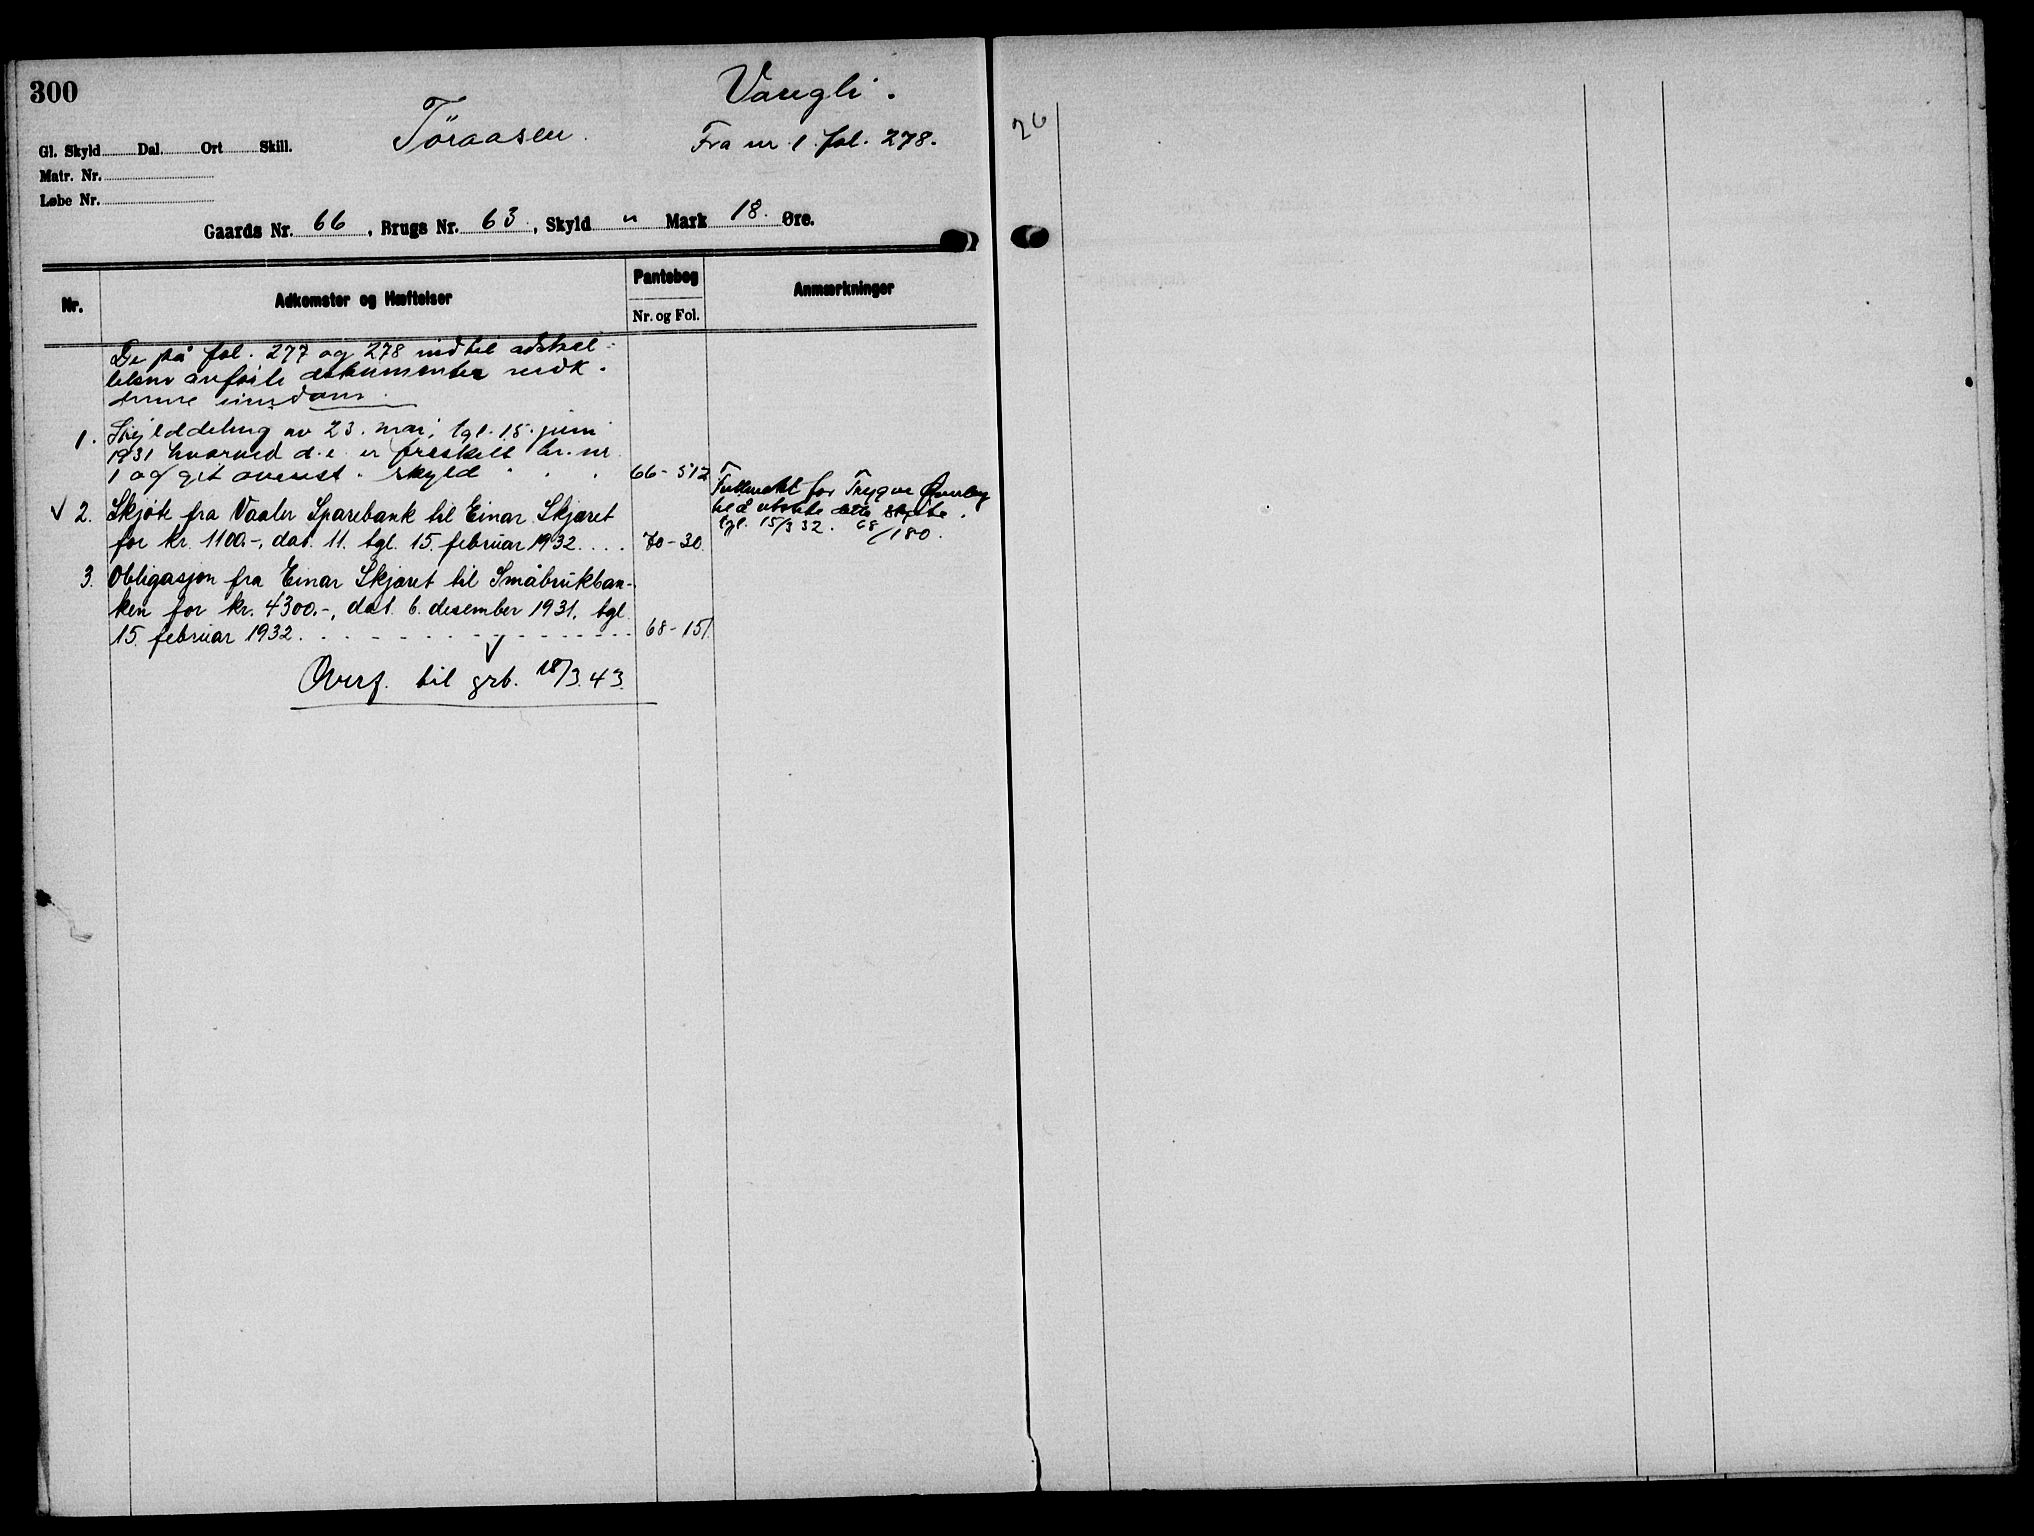 300
Vangli.
Töraasen.
Fra nr. 1. fol. 278.
Gl. Skyld Dal. Ort Skill.
Matr. Nr.
Løbe Nr.
Gaards Nr. 66, Brugs Nr. 63, Skyld " Mark 18. Øre.
Nr.
Adkomster og Hæftelser
Pantebog
Nr. og Fol.
Anmærkninger
De på fol. 277 og 278 indtil adskil-
lelsen anførte dokumenter vedk.
denne eiendom.
1. Skylddeling av 23. mai, tgl. 15. juni
1931 hvorved d. e. er fraskilt br. nr.
1 og git ovenst. skyld . . . 66-512
√ 2. Skjöte fra Vaaler Sparebank til Einar Skjæret
for kr. 1100.-, dat. 11. tgl. 15. februar 1932.... 70-30.
Fullmakt for Trygve Øverby
til å utstede dette skjøte.
tgl. 15/3 32. 68/180.
3. Obligasjon fra Einar Skjæret til Småbrukban-
ken for kr. 4300.-, dat. 6. desember 1931, tgl.
15. februar 1932. 68-151
√
Overf. til grb. 18/3.43.
26